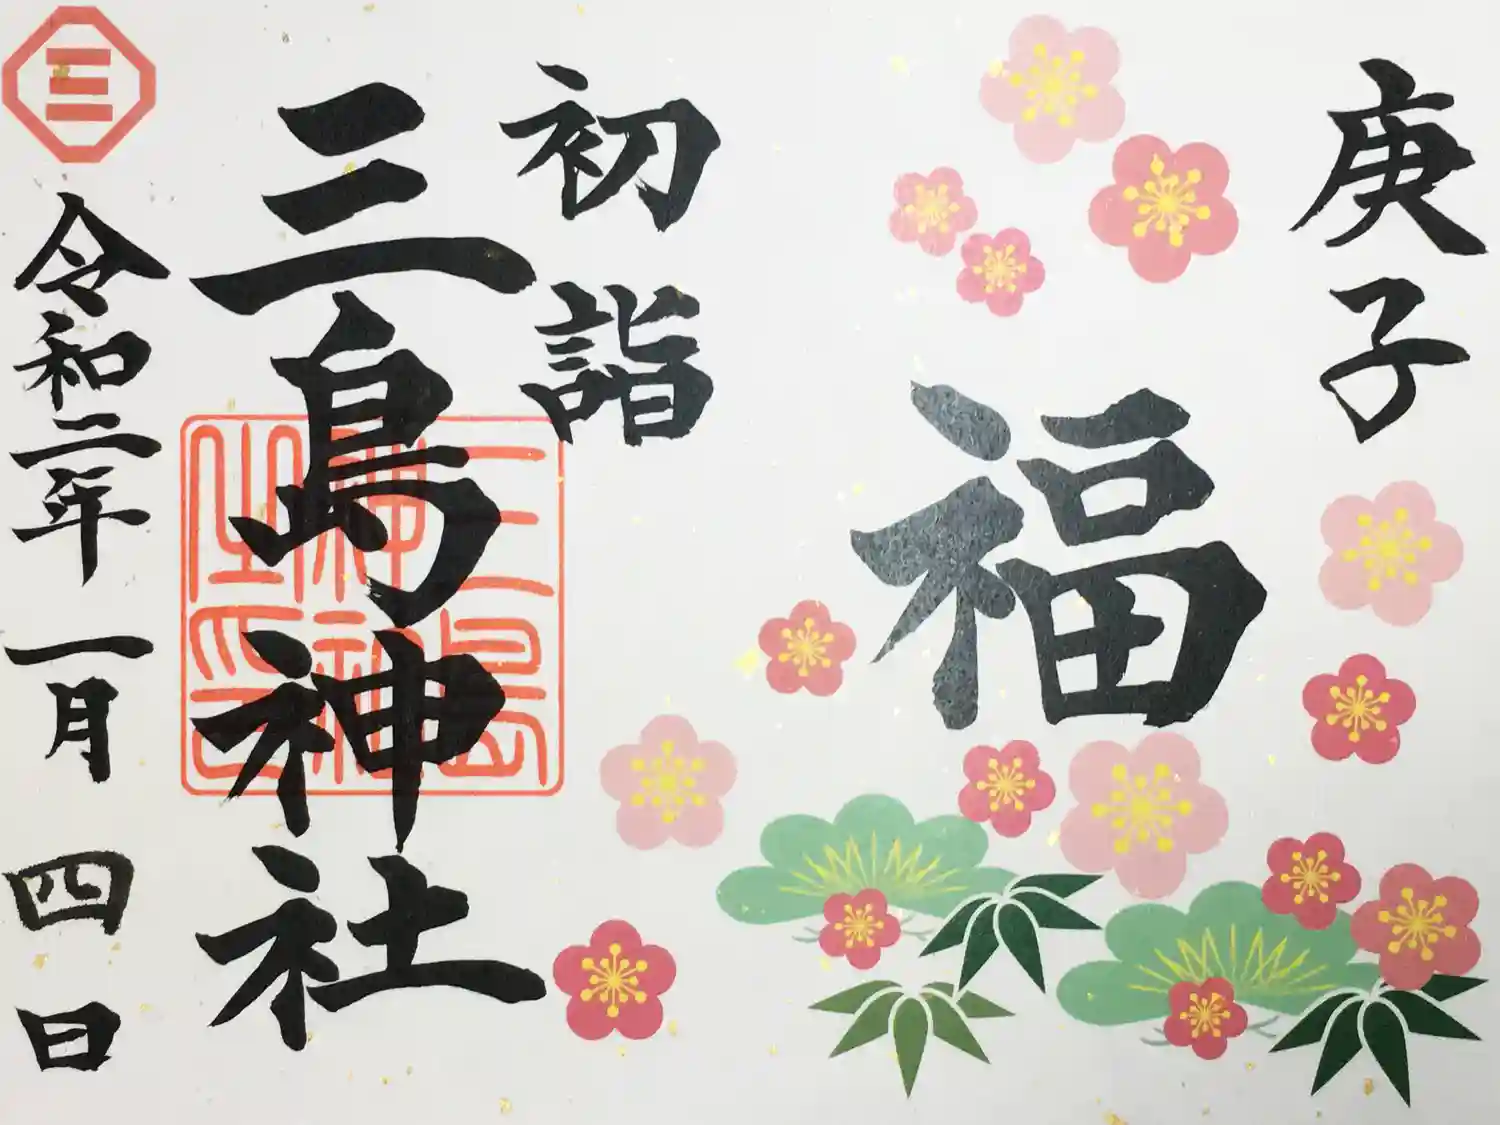 庚子
福
初詣
三島神社
三島
神社
之印
令和二年 一月 四日
三